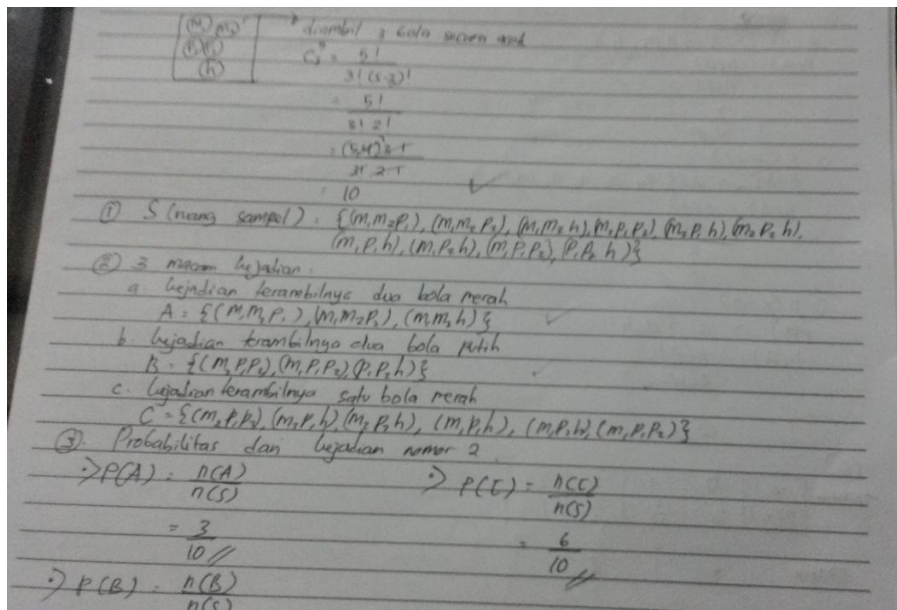 (m₁) (m₂) diambil 3 bola secara acak
(P₁) (P₂)
(h)
C₃⁵ = 5!
3! (5-3)!
= 5!
3! 2!
= (5.4) 3!
3! 2!
= 10
① S (ruang sampel) = {(m₁m₂P₁), (m₁m₂P₂), (m₁m₂h), (m₂P₁P₂), (m₂P₁h), (m₂P₂h),
(m₁P₁h), (m₁P₂h), (m₁P₁P₂), (P₁P₂h)}
② 3 macam kejadian.
a. kejadian terambilnya dua bola merah
A = {(m₁m₂P₁), (m₁m₂P₂), (m₁m₂h)}
b. kejadian terambilnya dua bola putih
B = {(m₂P₁P₂), (m₁P₁P₂), (P₁P₂h)}
c. kejadian terambilnya satu bola merah
C = {(m₂P₁P₂), (m₂P₁h), (m₂P₂h), (m₁P₁h), (m₁P₂h), (m₁P₁P₂)}
③. Probabilitas dari kejadian nomor 2.
·> P(A) = n(A) ·> P(C) = n(C)
n(S) n(S)
= 3 = 6
10 // 10 //
·> P(B) = n(B)
n(S)